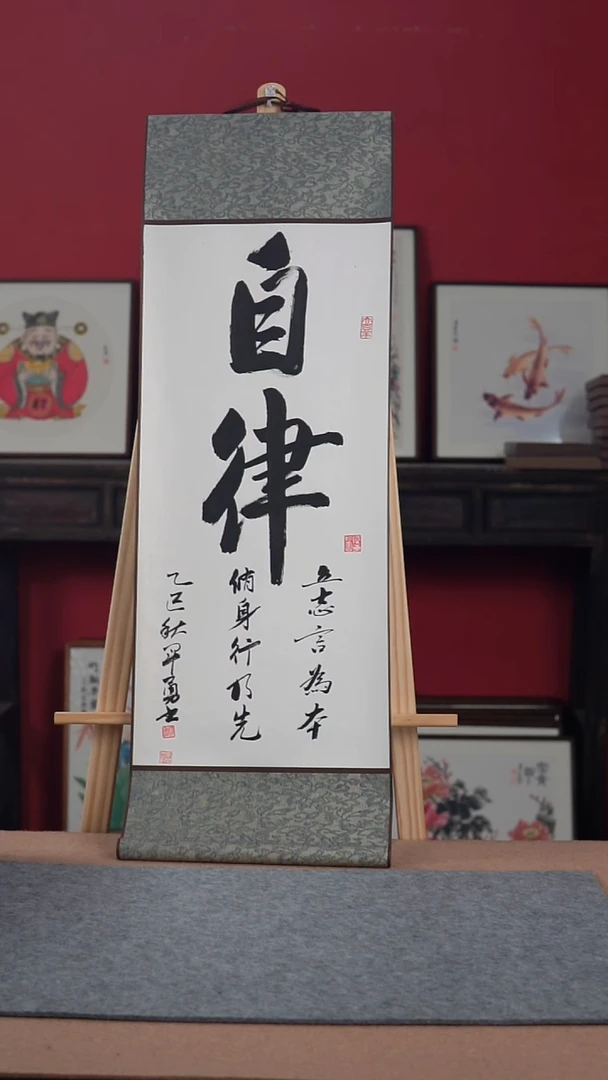 自律
立志言為本
脩身行乃先
乙巳秋畢勇書